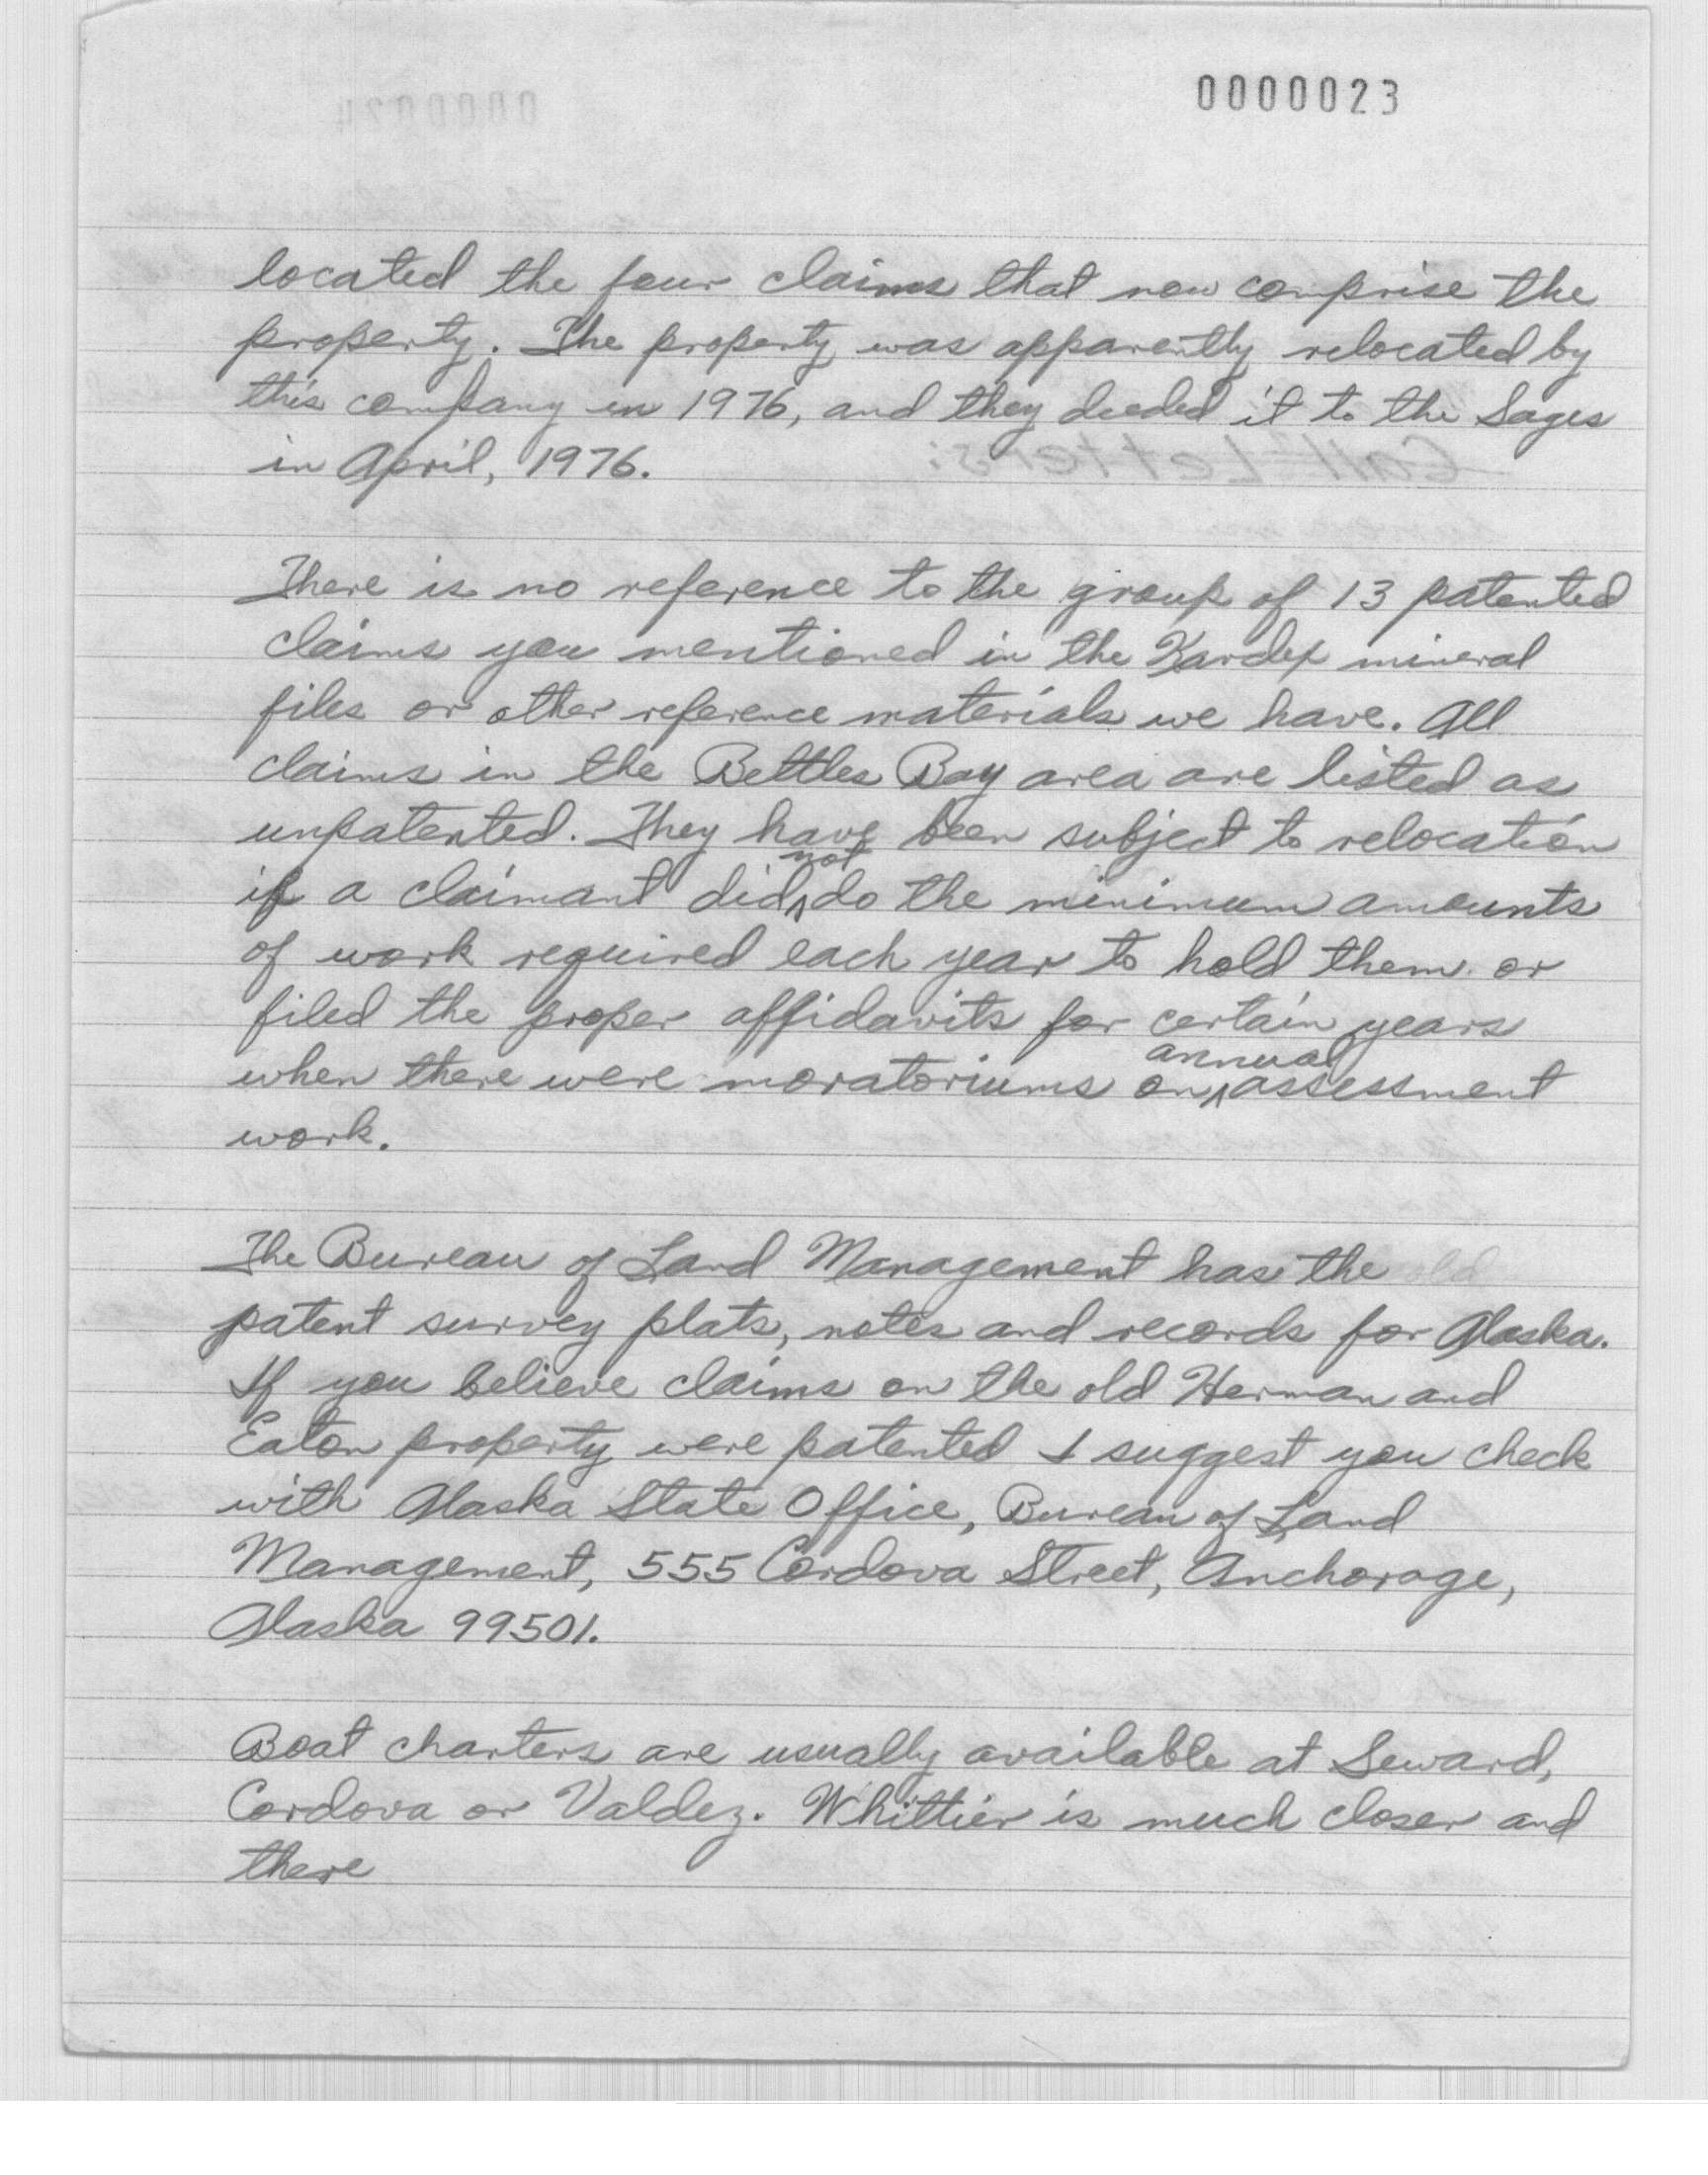 0000023
located the four claims that now comprise the
property. The property was apparently relocated by
this company in 1976, and they deeded it to the Sages
in April, 1976.
There is no reference to the group of 13 patented
claims you mentioned in the Kardex mineral
files or other reference materials we have. All
claims in the Bettles Bay area are listed as
unpatented. They have been subject to relocation
if a claimant did not do the minimum amounts
of work required each year to hold them or
filed the proper affidavits for certain years
when there were moratoriums on annual assessment
work.
The Bureau of Land Management has the old
patent survey plats, notes and records for Alaska.
If you believe claims on the old Herman and
Eaton property were patented I suggest you check
with Alaska State Office, Bureau of Land
Management, 555 Cordova Street, Anchorage,
Alaska 99501.
Boat charters are usually available at Seward,
Cordova or Valdez. Whittier is much closer and
there